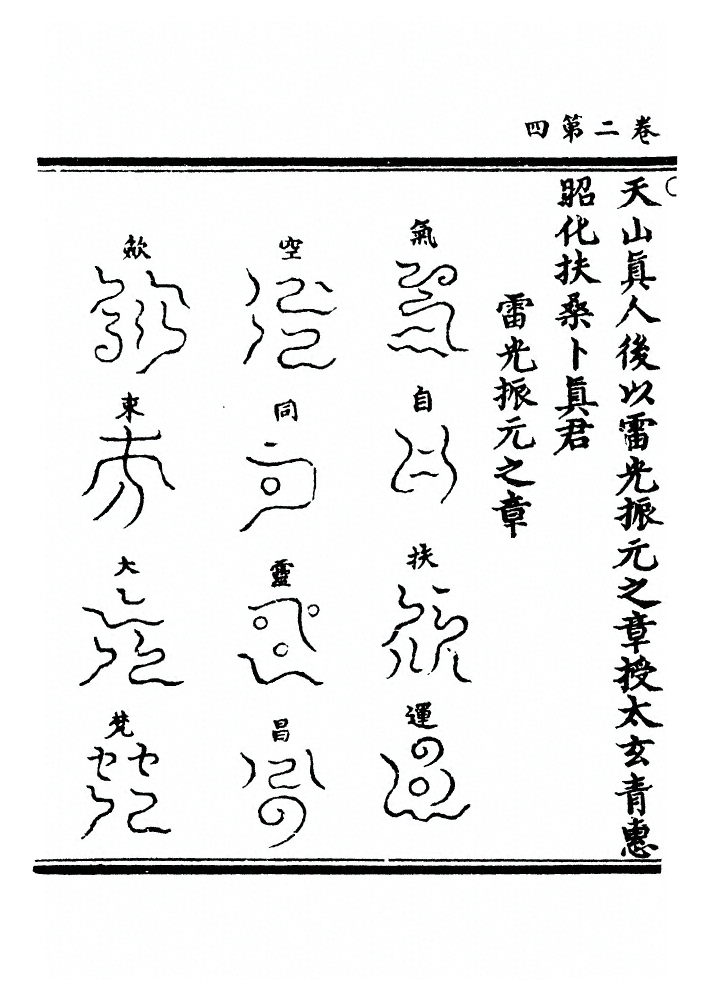 卷二第四
天山眞人後以雷光振元之章授太玄青惠
昭化扶桑卜眞君
雷光振元之章
氣自扶運
空同靈昌
歘東大梵